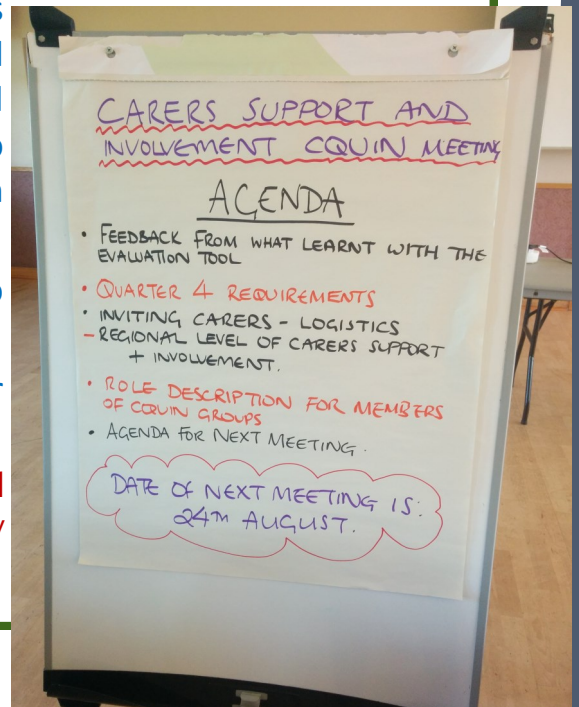 CARERS SUPPORT AND
INVOLVEMENT CQUIN MEETING
AGENDA
• FEEDBACK FROM WHAT LEARNT WITH THE
EVALUATION TOOL
• QUARTER 4 REQUIREMENTS
• INVITING CARERS - LOGISTICS
- REGIONAL LEVEL OF CARERS SUPPORT
+ INVOLVEMENT.
• ROLE DESCRIPTION FOR MEMBERS
OF CQUIN GROUPS
• AGENDA FOR NEXT MEETING.
DATE OF NEXT MEETING IS:
24TH AUGUST.